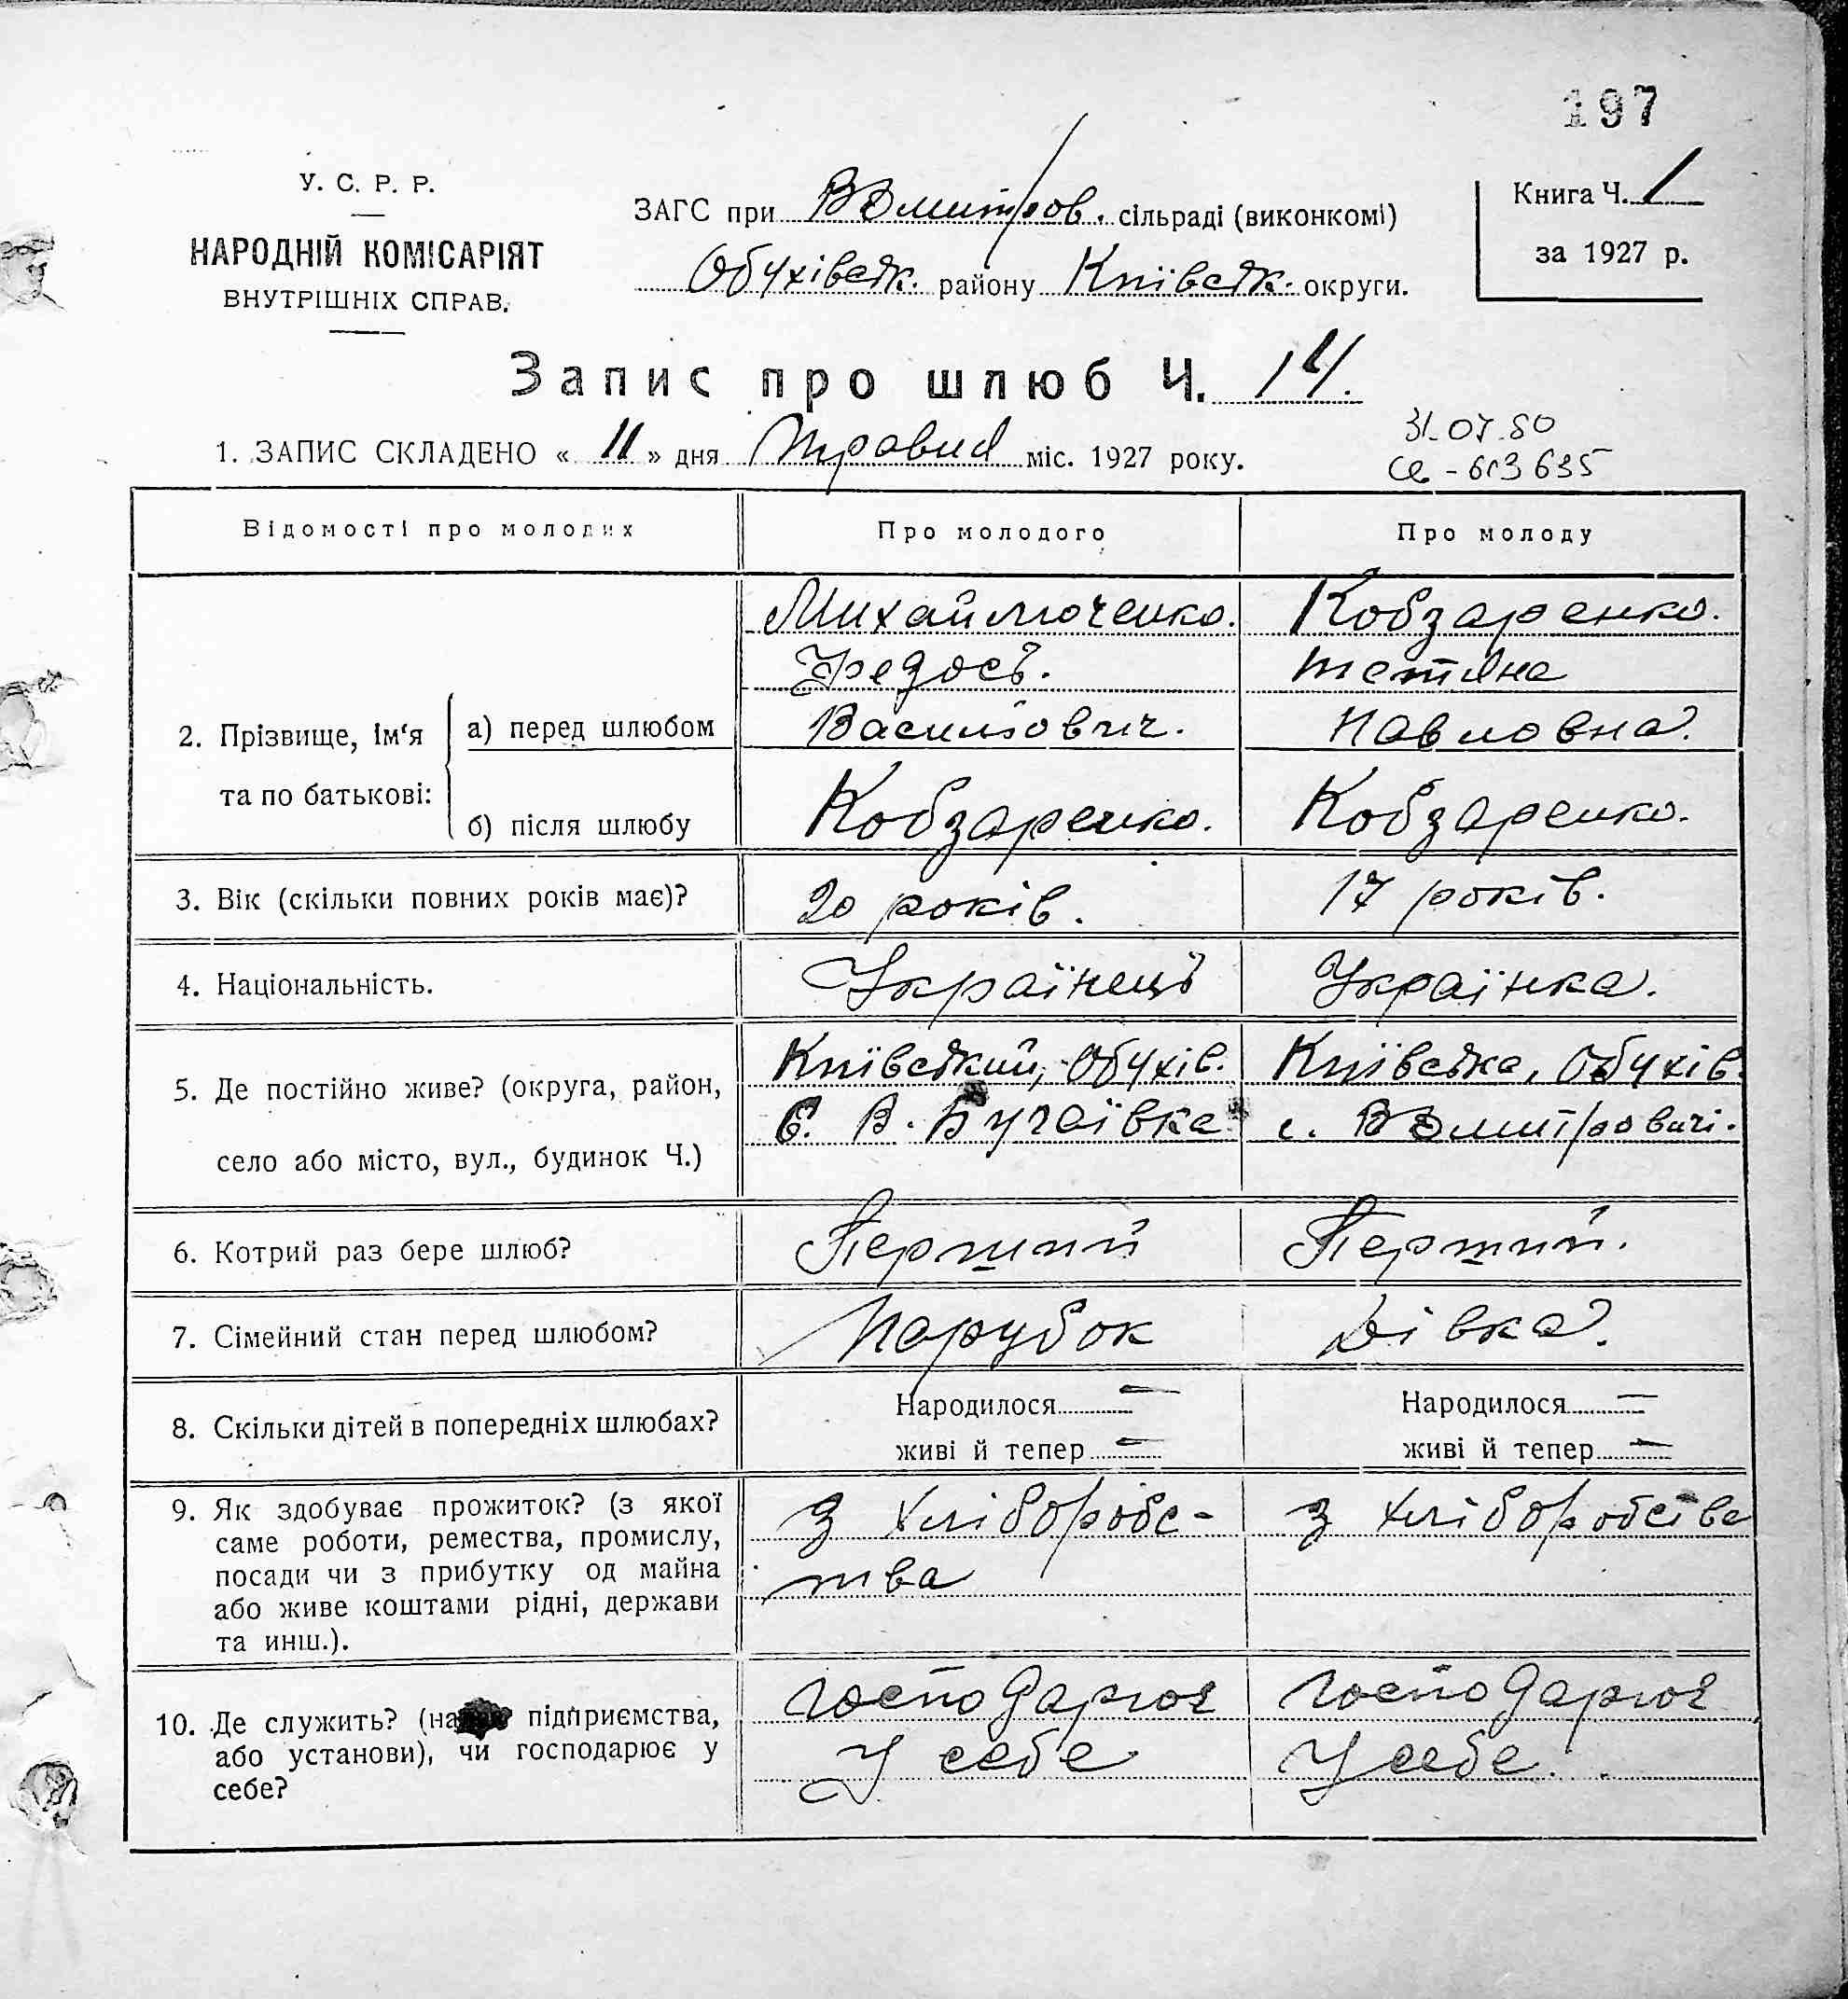 197
У. С. Р. Р.
НАРОДНІЙ КОМІСАРІЯТ
ВНУТРІШНІХ СПРАВ.
ЗАГС при ВДмитров. сільраді (виконкомі)
Обухівськ. району Київськ. округи.
Книга Ч. 1
за 1927 р.
Запис про шлюб Ч. 14.
1. ЗАПИС СКЛАДЕНО « 11 » дня Травня міс. 1927 року.
31-07-80
613635
Відомості про молодих
Про молодого
Про молоду
2. Прізвище, ім'я та по батькові:
а) перед шлюбом
Михайлюченко.
Федось.
Васильович.
Кобзаренко.
Тетяна
Павловна.
б) після шлюбу
Кобзаренко.
Кобзаренко.
3. Вік (скільки повних років має)?
20 років.
17 років.
4. Національність.
Українець
Українка.
5. Де постійно живе? (округа, район,
село або місто, вул., будинок Ч.)
Київський, Обухів.
с. В. Бугаївка
Київська, Обухів.
с. ВДмитровичі.
6. Котрий раз бере шлюб?
Перший
Перший.
7. Сімейний стан перед шлюбом?
Парубок
Дівка.
8. Скільки дітей в попередніх шлюбах?
Народилося —
живі й тепер —
Народилося —
живі й тепер —
9. Як здобуває прожиток? (з якої
саме роботи, ремества, промислу,
посади чи з прибутку од майна
або живе коштами рідні, держави
та инш.).
З хліборобс-
тва
З хліборобства
10. Де служить? (на підприємства,
або установи), чи господарює у
себе?
Господарює
У себе
Господарює
У себе.